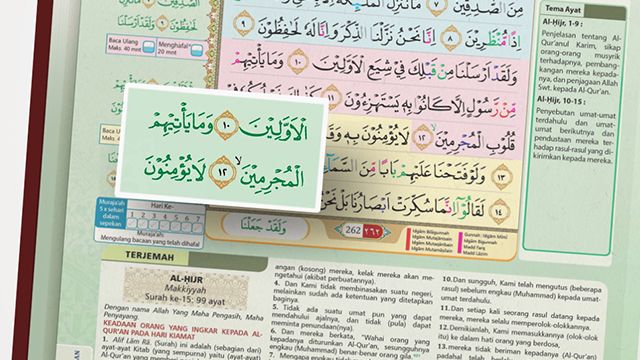 مِنَ الصّٰدِقِيْنَ ٧ مَا نُنَزِّلُ الْمَلٰۤىِٕكَةَ
اِذًا مُّنْظَرِيْنَ ٨ اِنَّا نَحْنُ نَزَّلْنَا الذِّكْرَ وَاِنَّا لَهٗ لَحٰفِظُوْنَ ٩
وَلَقَدْ اَرْسَلْنَا مِنْ قَبْلِكَ فِيْ شِيَعِ الْاَوَّلِيْنَ ١٠ وَمَا يَأْتِيْهِمْ
مِّنْ رَّسُوْلٍ اِلَّا كَانُوْا بِهٖ يَسْتَهْزِءُوْنَ ١١
قُلُوْبِ الْمُجْرِمِيْنَ ١٢ لَا يُؤْمِنُوْنَ بِهٖ
وَلَوْ فَتَحْنَا عَلَيْهِمْ بَابًا مِّنَ السَّمَاۤءِ ١٣
لَقَالُوْٓا اِنَّمَا سُكِّرَتْ اَبْصَارُنَا بَلْ نَحْنُ ١٤
لَحٰفِظُوْنَ ٩ وَلَقَدْ اَرْسَلْنَا
Baca Ulang
Maks. 40 mnt
Menghafal
20 mnt
الْاَوَّلِيْنَ ١٠ وَمَا يَأْتِيْهِمْ
الْمُجْرِمِيْنَ ١٢ لَا يُؤْمِنُوْنَ
Muraja'ah
5 x sehari
dalam
sepekan
Hari Ke-
1 2 3 4 5 6 7
Muraja'ah:
Mengulang bacaan yang telah dihafal
وَلَقَدْ جَعَلْنَا
262 ٢٦٢
Idgām Bilāgunnah
Idgām Mutajānisain
Idgām Mutaqāribain
Gunnah
Idgām Mīmī
Idgām Bigunnah
Madd Farq
Tema Ayat
Al-Ḥijr, 1-9 :
Penjelasan tentang Al-
Qur'anul Karim, sikap
orang-orang musyrik
terhadapnya, pembang-
kangan mereka kepada-
nya, dan penjagaan Allah
Swt. kepada Al-Qur'an.
Al-Ḥijr, 10-15 :
Penyebutan umat-umat
terdahulu dan umat-
umat berikutnya dan
pendustaan mereka ter-
hadap rasul-rasul yang di-
kirimkan kepada mereka.
TERJEMAH
AL-ḤIJR
Makkiyyah
Surah ke-15: 99 ayat
Dengan nama Allah Yang Maha Pengasih, Maha
Penyayang.
KEADAAN ORANG YANG INGKAR KEPADA AL-
QUR'AN PADA HARI KIAMAT
1. Alif Lām Rā. (Surah) ini adalah (sebagian dari)
ayat-ayat Kitab (yang sempurna) yaitu (ayat-ayat)
angan (kosong) mereka, kelak mereka akan me-
ngetahui (akibat perbuatannya).
4. Dan Kami tidak membinasakan suatu negeri,
melainkan sudah ada ketentuan yang ditetapkan
baginya.
5. Tidak ada suatu umat pun yang dapat
mendahului ajalnya, dan tidak (pula) dapat
meminta penundaan(nya).
6. Dan mereka berkata, "Wahai orang yang
kepadanya diturunkan Al-Qur'an, sesungguhnya
engkau (Muhammad) benar-benar orang gila.
10. Dan sungguh, Kami telah mengutus (beberapa
rasul) sebelum engkau (Muhammad) kepada umat-
umat terdahulu.
11. Dan setiap kali seorang rasul datang kepada
mereka, mereka selalu memperolok-olokkannya.
12. Demikianlah, Kami memasukkannya (olok-olok
itu) ke dalam hati orang yang berdosa,